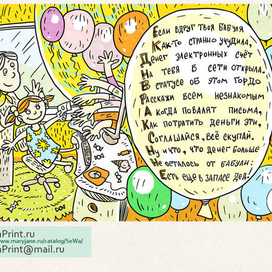 Если вдруг твоя бабуля
Как-то странно учудила,
Денег электронных счёт
На тебя в сети открыла.
В статусе об этом гордо
Расскажи всем незнакомым
А когда повалят письма,
Как потратить деньги эти
Соглашайся, всё скупай.
Ну и что, что денег больше
Не осталось от бабули:
Есть ещё в запасе дед.
aPrint.ru
www.maryjane.ru/catalog/SeWa/
aPrint@mail.ru